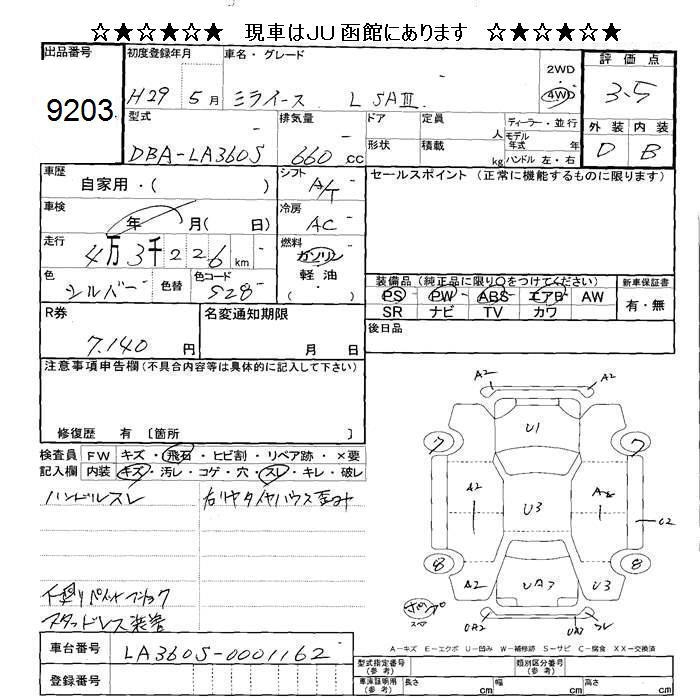 ☆★☆★☆★ 現車はJU函館にあります ☆★☆★☆★
出品番号 9203
初度登録年月 H29 5月
車名・グレード ミライース L SAⅢ
2WD
4WD
評価点 3.5
外装 内装
D B
型式 DBA-LA360S
排気量 660cc
ドア 定員 人
形状 積載 kg
ディーラー・並行
モデル年式 年
ハンドル 左・右
車歴 自家用・( )
シフト A/T
セールスポイント (正常に機能するものに限ります)
車検 年 月( 日)
冷房 AC
走行 4万3千226km
燃料 ガソリン
軽油
( )
色 シルバー
色替
色コード S28
装備品 (純正品に限り○をつけてください)
PS PW ABS エアB AW
SR ナビ TV カワ
新車保証書
有・無
R券 7,140円
名変通知期限 月 日
後日品
注意事項申告欄 (不具合内容等は具体的に記入して下さい)
修復歴 有 〔箇所 〕
検査員 FW キズ・飛石・ヒビ割・リペア跡・×要
記入欄 内装 キズ・汚レ・コゲ・穴・スレ・キレ・破レ
ハンドルスレ
右リヤタイヤハウス歪み
スタッドレス装着
A2 A2
U1
7 7
A2 U3
U2
8 8
A2 UA3 U3
UA2 UA3 スレ
A-キズ E-エクボ U-凹み W-補修跡 S-サビ C-腐食 XX-交換済
車台番号 LA360S-0001162
登録番号
型式指定番号 (参考)
類別区分番号 (参考)
車庫証明用 (参考) 長さ cm 幅 cm 高さ cm